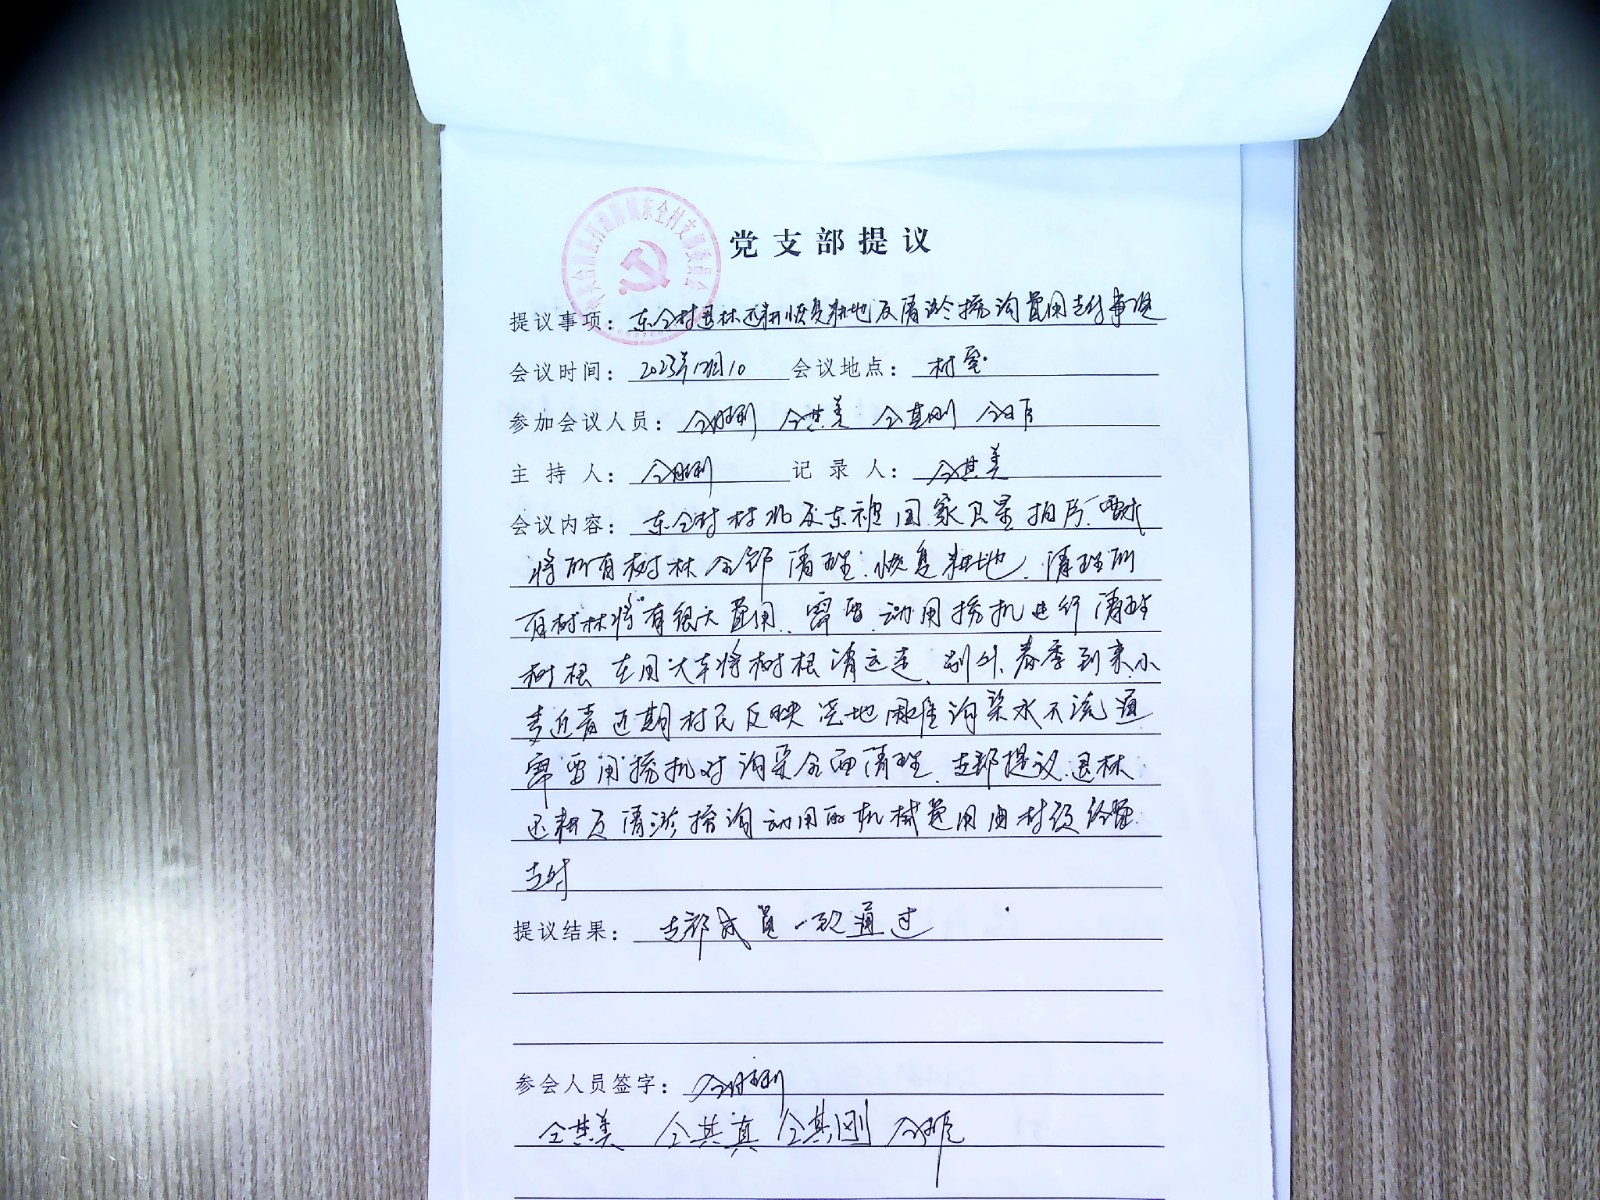 党支部提议
提议事项：东仝村退林还耕恢复耕地及清淤挖沟费用支付事宜
会议时间：2023年12月10 会议地点：村室
参加会议人员：仝 仝其美 仝其刚 仝
主持人：仝 记录人：仝其美
会议内容：东仝村村北及东被国家卫星拍片，要求
将所有树林全部清理，恢复耕地，清理所
有树林将有很大费用，需要动用挖机进行清理
树根在用大车将树根清运走，别外，春季到来小
麦近青近期村民反映 地 沟渠水不流通
需要用挖机对沟渠全面清理，支部提议退林
还耕及清淤挖沟动用的机械费用由村级经费
支付
提议结果：支部成员一致通过
参会人员签字：仝
仝其美 仝其真 仝其刚 仝